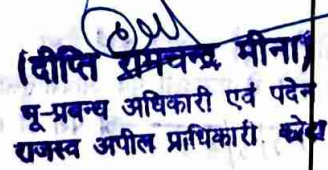 (दीप्ति रामचन्द्र मीना)
भू-प्रबन्ध अधिकारी एवं पदेन
राजस्व अपील प्राधिकारी. कोटा